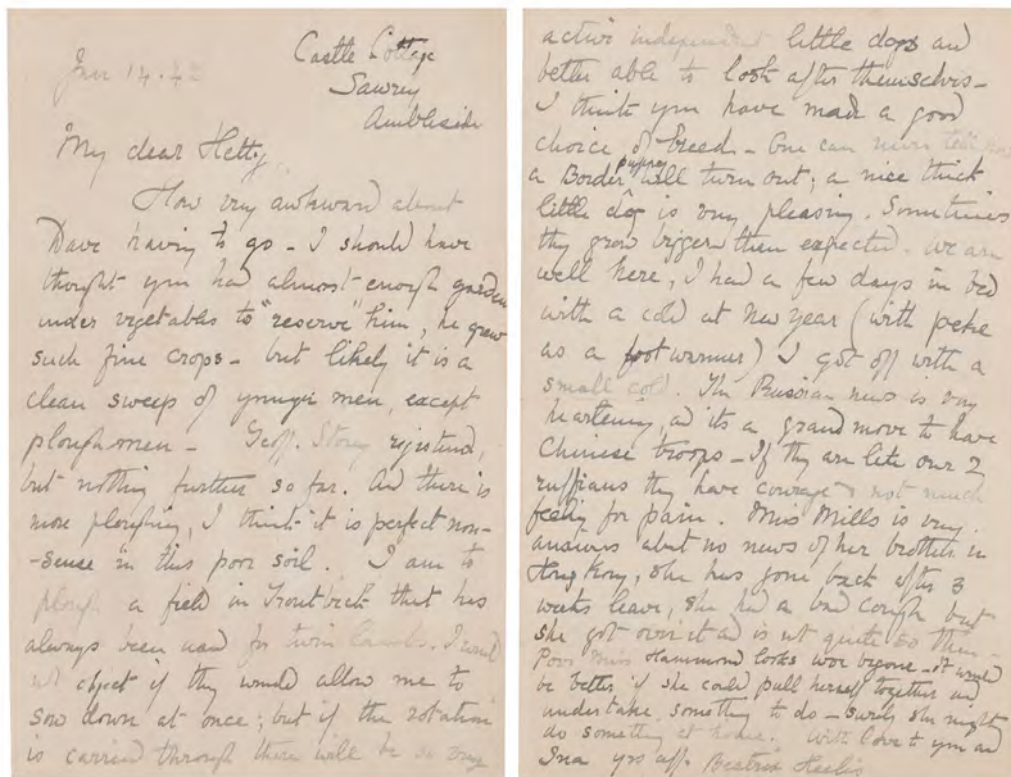 Jan 14. 42
Castle Cottage
Sawrey
Ambleside
My dear Hetty,
How very awkward about
Dave having to go - I should have
thought you had almost enough garden
under vegetables to "reserve" him, he grew
such fine crops - but likely it is a
clean sweep of younger men, except
ploughmen - Geoff. Storey registered,
but nothing further so far. And there is
more ploughing, I think it is perfect non-
-sense in this poor soil. I am to
plough a field in Troutbeck that has
always been used for twin lambs. I would
not object if they would allow me to
sow down at once; but if the rotation
is carried through there will be so very
active independent little dogs and
better able to look after themselves -
I think you have made a good
choice of breed - One can never tell how
a Border puppy will turn out; a nice thick
little dog is very pleasing. Sometimes
they grow bigger then expected. We are
well here, I had a few days in bed
with a cold at New Year (with peke
as a foot warmer) I got off with a
small cold. The Russian news is very
heartening, and its a grand move to have
Chinese troops - If they are like our 2
ruffians they have courage & not much
feeling for pain. Miss Mills is very
anxious about no news of her brother in
Hong Kong, she has gone back after 3
weeks leave, she had a bad cough but
she got over it and is not quite so thin -
Poor Miss Hammond looks woe begone - it would
be better if she could pull herself together and
undertake something to do - surely she might
do something at home. With love to you and
Ina yrs aff. Beatrix Heelis